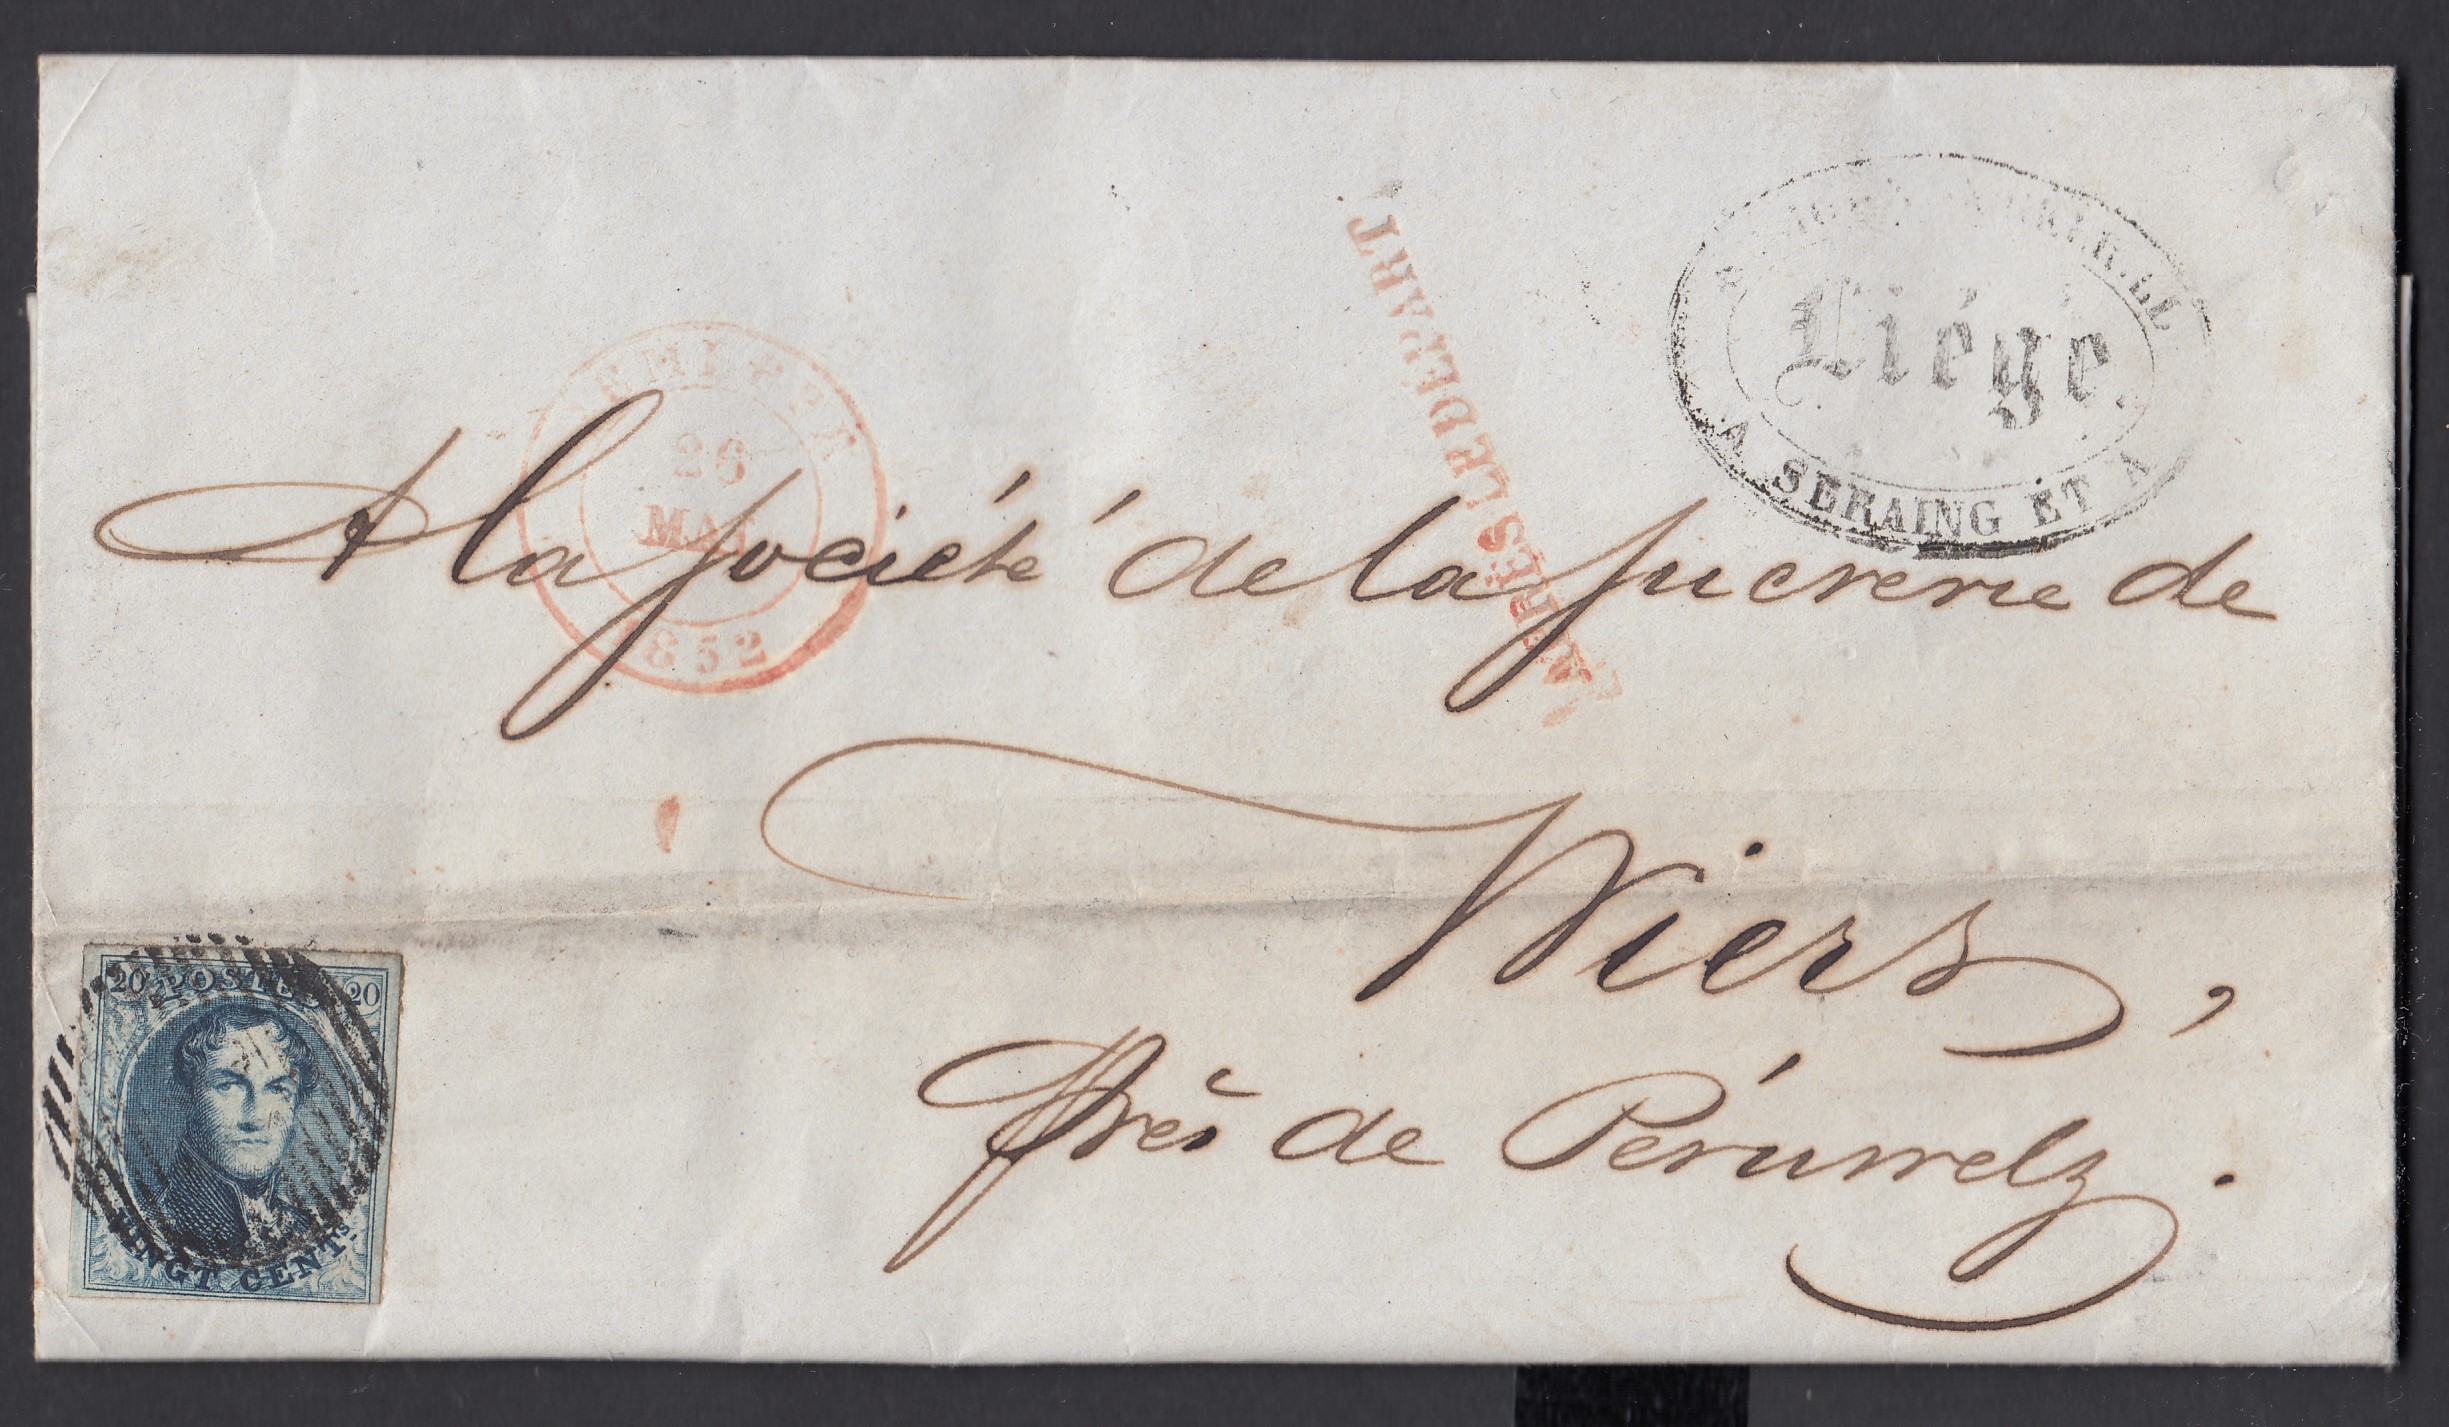 APRES LE DEPART
Liége.
A SERAING ET A
26
MAI
1852
A la société de la sucrerie de
Wiers,
Près de Péruwelz.
20 POSTES 20
VINGT CENTS.